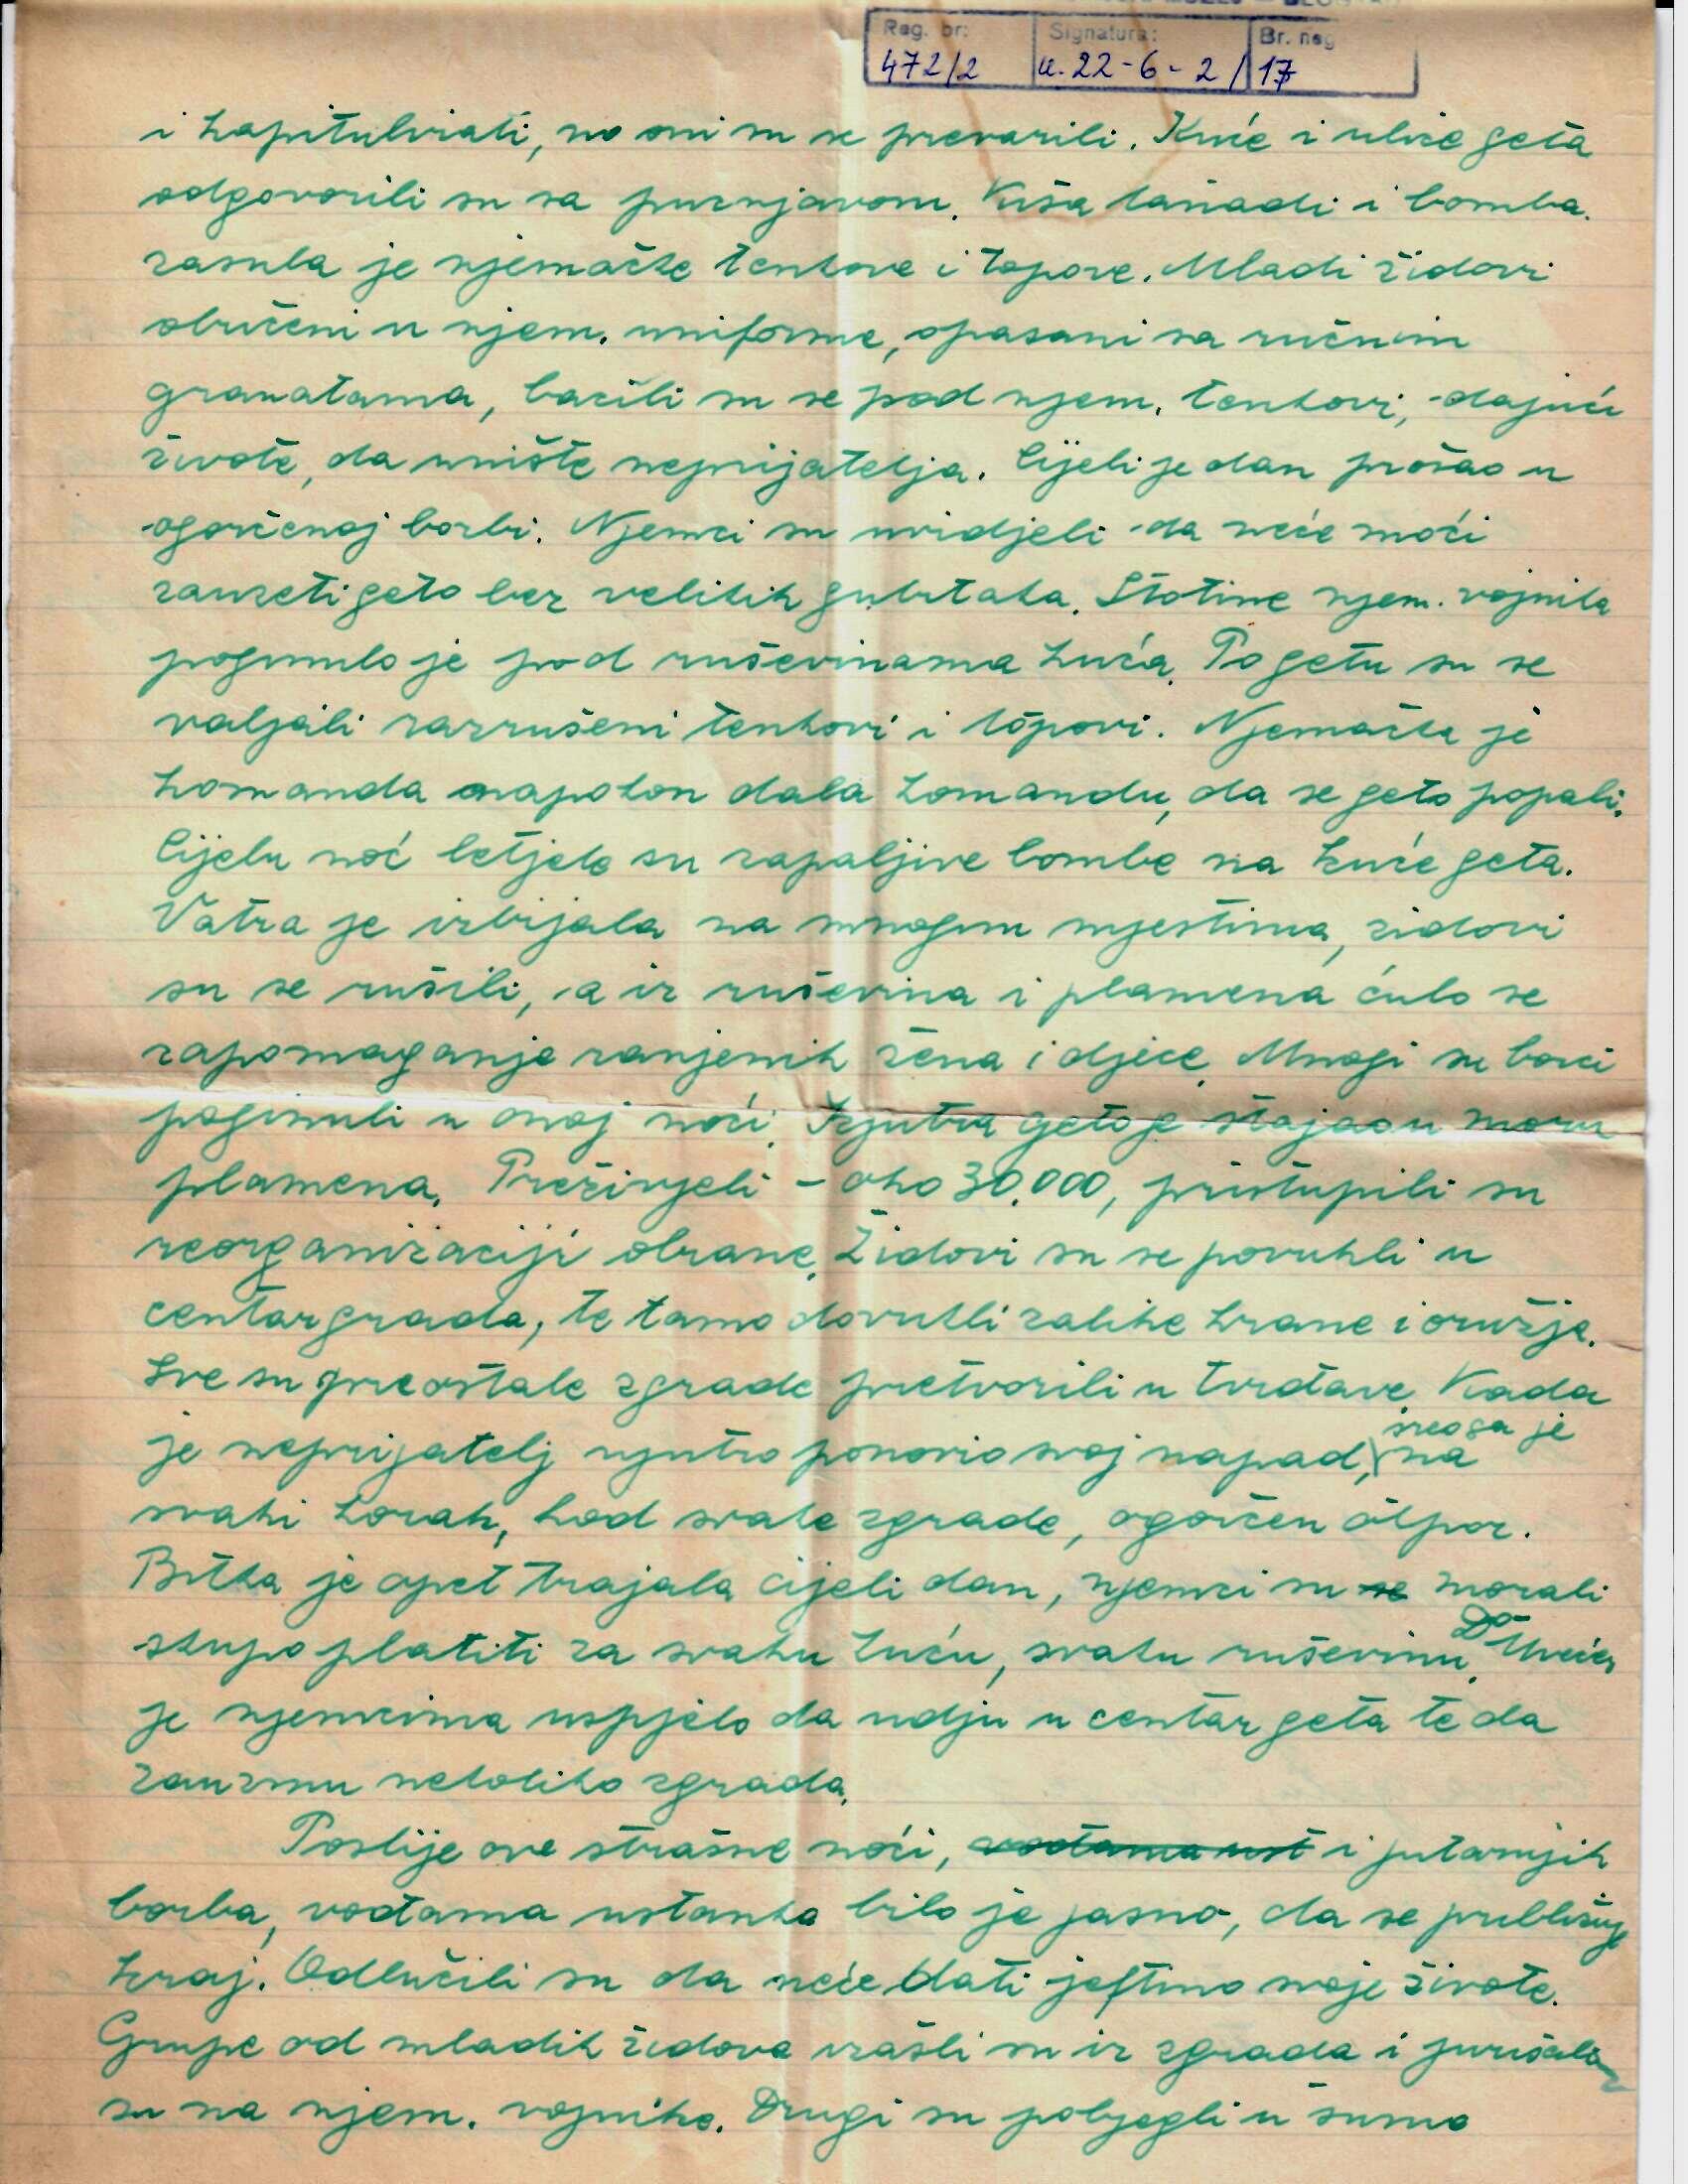 Reg. br: Signatura: Br. neg
472/2 u. 22-6-2/ 17
i kapitulirati, no oni su se prevarili. Kuće i ulice geta
odgovorili su sa pucnjavom. Kiša tanadi i bomba.
zasula je njemačke tenkove i topove. Mladi židovi
obučeni u njem. uniforme, opasani sa ručnim
granatama, bacili su se pod njem. tenkovi, dajući
živote, da unište neprijatelja. Cijeli je dan prošao u
ogorčenoj borbi. Njemci su uvidjeli da neće moći
zauzeti geto bez velikih gubitaka. Stotine njem. vojnika
poginulo je pod ruševinama kuća. Po getu su se
valjali razrušeni tenkovi i topovi. Njemačka je
komanda napokon dala komandu, da se geto popali.
Cijelu noć letjele su zapaljive bombe na kuće geta.
Vatra je izbijala na mnogim mjestima, zidovi
su se rušili, a iz ruševina i plamena čulo se
zapomaganje ranjenih žena i djece. Mnogi su borci
poginuli u onoj noći. Izjutra geto je stajao u moru
plamena. Preživjeli - oko 30.000, pristupili su
reorganizaciji obrane. Židovi su se povukli u
centar grada, te tamo dovukli zalihe hrane i oružje.
Sve su preostale zgrade pretvorili u tvrđave. Kada
je neprijatelj ujutro ponovio svoj napad, sreoga je na
svaki korak, kod svake zgrade, ogorčen otpor.
Bitka je opet trajala cijeli dan, njemci su se morali
skupo platiti za svaku kuću, svaku ruševinu. Do Uvečer
je njemcima uspjelo da udju u centar geta te da
zauzmu nekoliko zgrada.
Poslije ove strašne noći, vođama ust i jutarnjih
borba, vođama ustanka bilo je jasno, da se približuje
kraj. Odlučili su da neće dati jeftino svoje živote.
Grupe od mladih židova izašli su iz zgrada i jurišale
su na njem. vojnike. Drugi su pobjegli u šume